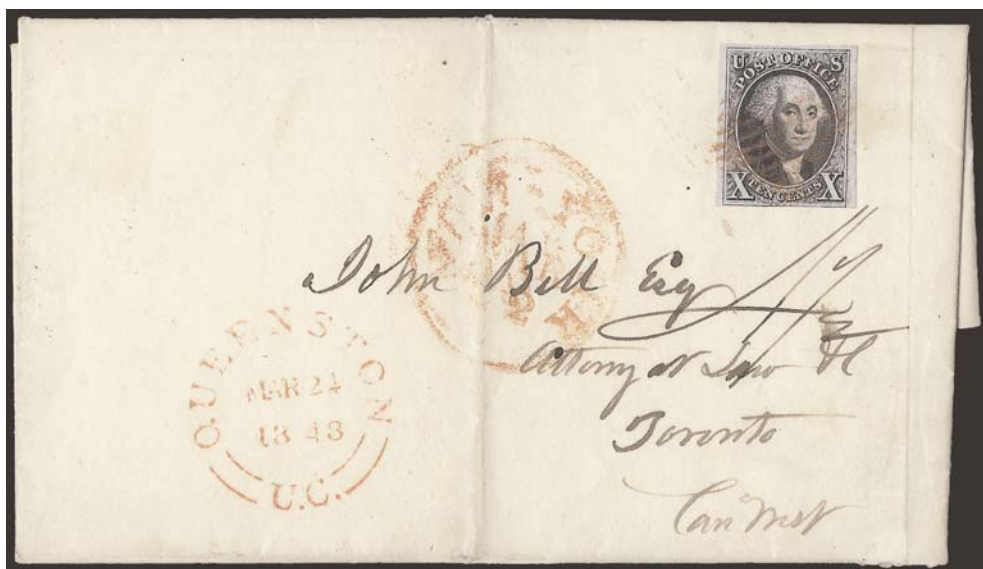 U S
POST OFFICE
X TEN CENTS X
NEW-YORK
John Bell Esq
Attorney at Law &c
Toronto
Can West
QUEENSTON
MAR 24
1848
U.C.